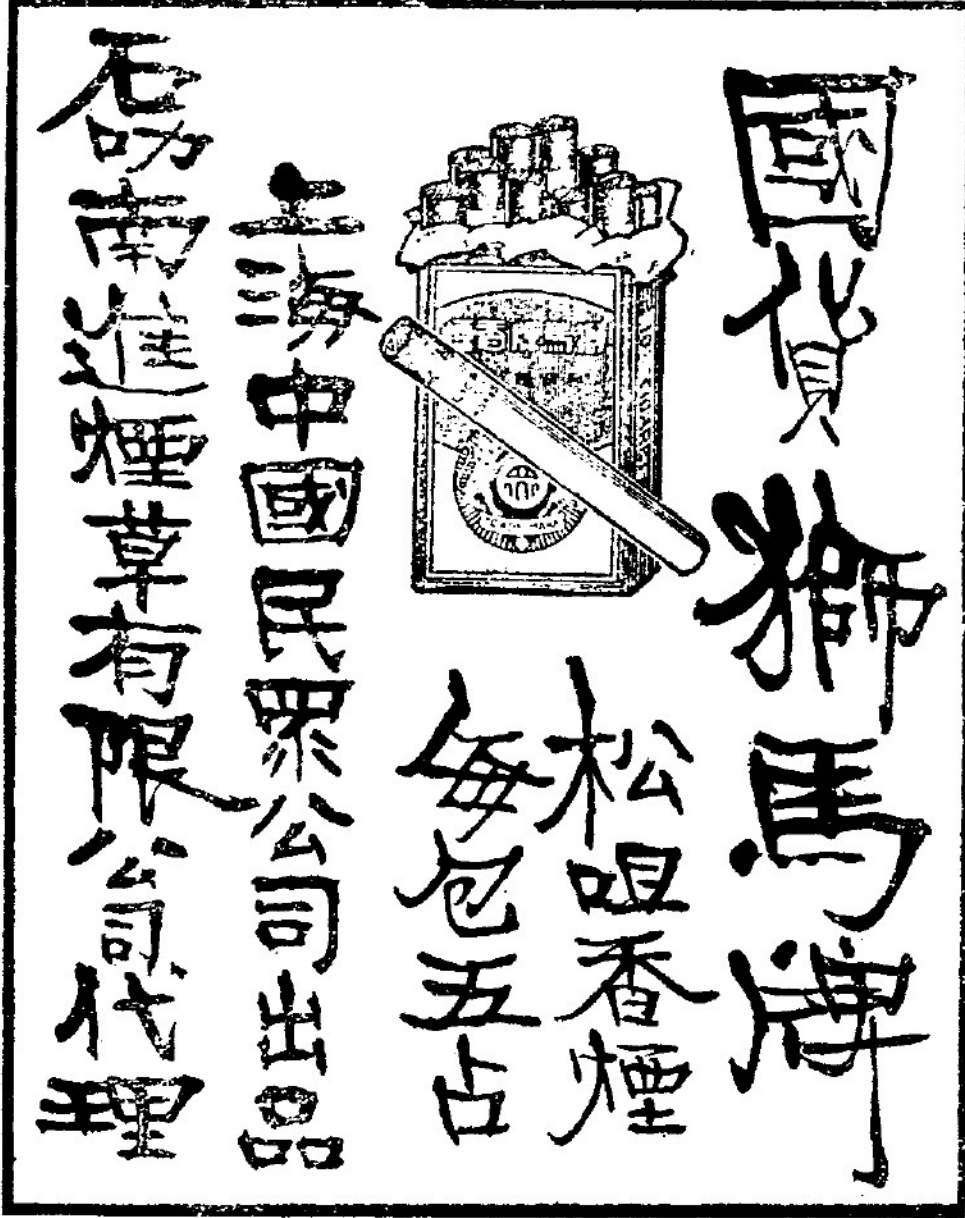 國貨獅馬牌
松咀香煙
每包五占
上海中國民眾公司出品
石叻南進煙草有限公司代理